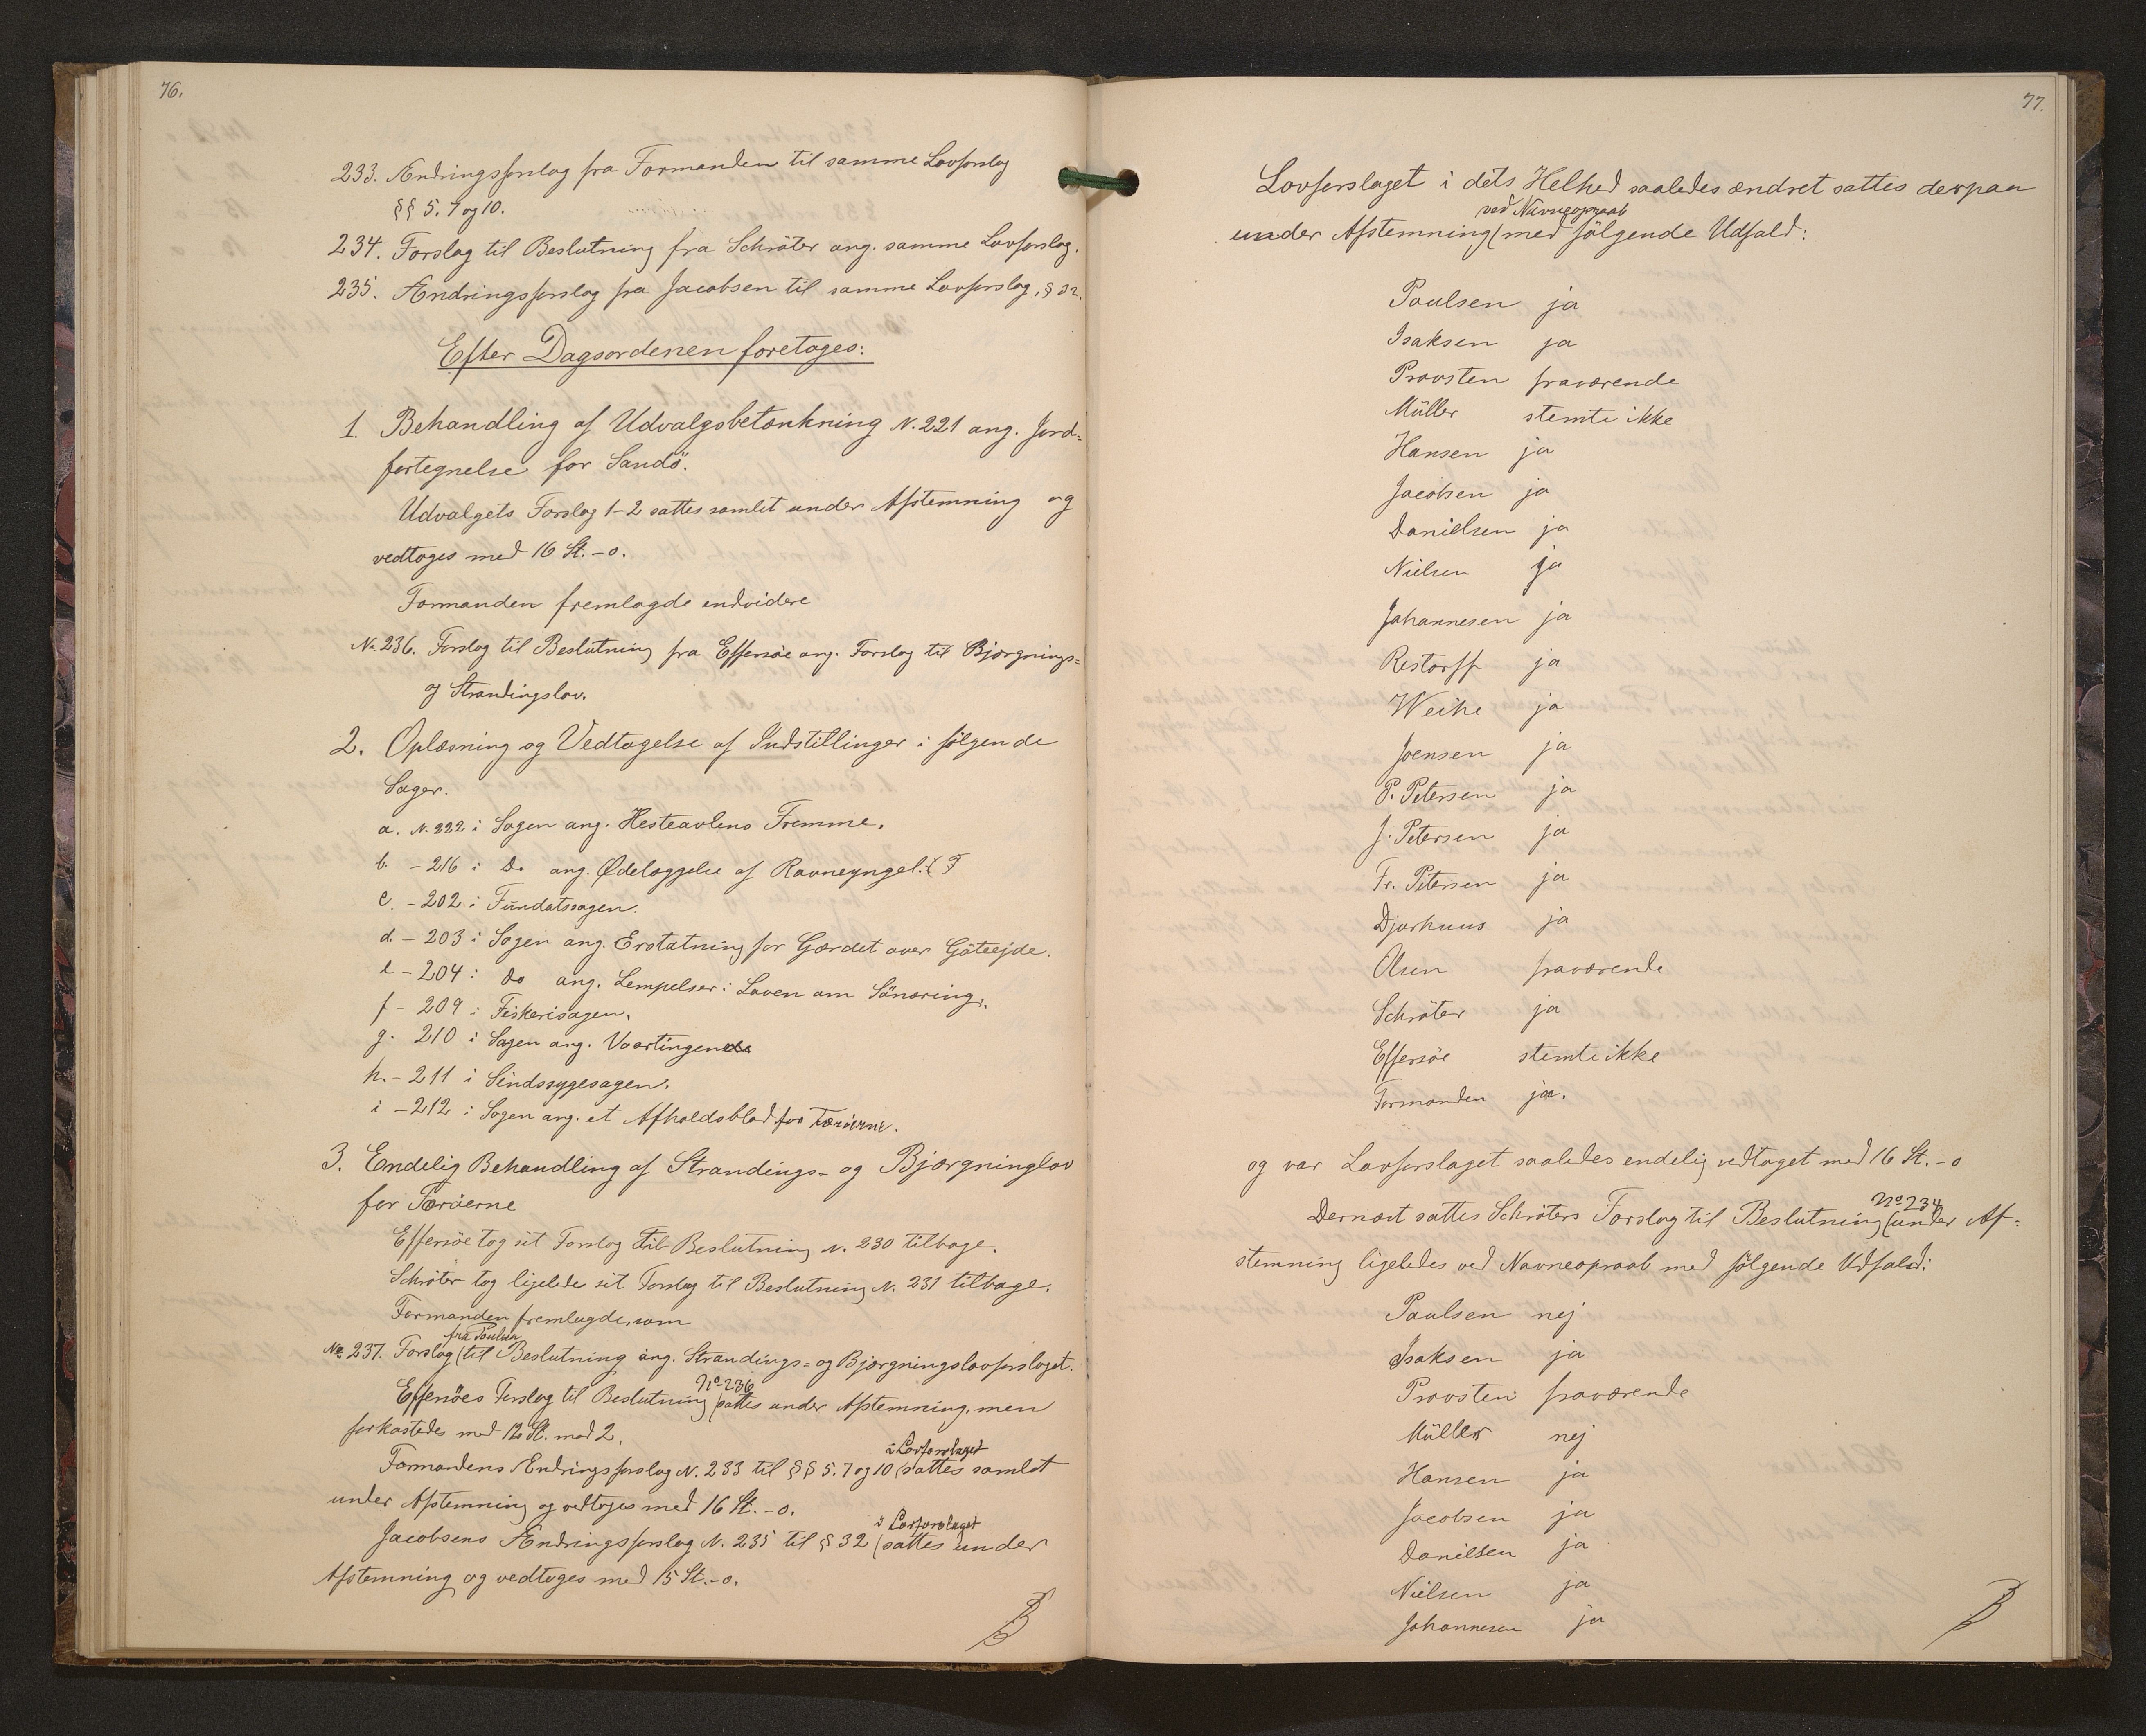 76.
233. Ændringsforslag fra Formanden til samme Lovforslag
§§ 5. 7 og 10.
234. Forslag til Beslutning fra Schröter ang. samme Lovforslag.
235. Ændringsforslag fra Jacobsen til samme Lovforslag, § 32.
Efter Dagsordenen foretoges:
1. Behandling af Udvalgsbetænkning N. 221 ang. Jord-
fortegnelse for Sandö.
Udvalgets Forslag 1-2 sattes samlet under Afstemning og
vedtoges med 16 St. - o.
Formanden fremlagde endvidere
No 236. Forslag til Beslutning fra Effersöe ang. Forslag til Bjærgnings-
og Strandingslov.
2. Oplæsning og Vedtagelse af Indstillinger i følgende
Sager.
a. N. 222 i Sagen ang. Hesteavlens Fremme.
b. - 216 i Do ang. Ødelæggelse af Ravneyngel.
c. - 202 i Fundatssagen.
d. - 203 i Sagen ang. Erstatning for Gærdet over Göteejde.
e - 204 i Do ang. Lempelser i Loven om Sönæring.
f - 209 i Fiskerisagen.
g. 210 i Sagen ang. Vaartingene
h. - 211 i Sindssygesagen.
i - 212 i Sagen ang. et Afholdsblad for Færöerne.
3. Endelig Behandling af Strandings- og Bjærgninglov
for Færöerne
Effersöe tog sit Forslag til Beslutning N. 230 tilbage.
Schröter tog ligeledes sit Forslag til Beslutning N. 231 tilbage.
Formanden fremlagde, som
fra Poulsen
No 237. Forslag ( til Beslutning ang. Strandings- og Bjærgningslovforslaget.
No 236
Effersöes Forslag til Beslutning ( sattes under Afstemning, men
forkastedes med 12 St. mod 2.
i Lovforslaget
Formandens Ændringsforslag N. 233 til §§ 5. 7 og 10 ( sattes samlet
under Afstemning og vedtoges med 16 St. - o.
i Lovforslaget
Jacobsens Ændringsforslag N. 235 til § 32 ( sattes under
Afstemning og vedtoges med 15 St. - o.
77.
Lovforslaget i dets Helhed saaledes ændret sattes derpaa
ved Navneopraab
under Afstemning ( med fölgende Udfald:
Poulsen ja
Isaksen ja
Provsten fraværende
Müller stemte ikke
Hansen ja
Jacobsen ja
Danielsen ja
Nielsen ja
Johannesen ja
Restorff ja
Weihe ja
Joensen ja
P. Petersen ja
J. Petersen ja
Fr. Petersen ja
Djurhuus ja
Olsen fraværende
Schröter ja
Effersöe stemte ikke
Formanden ja.
og var Lovforslaget saaledes endelig vedtaget med 16 St. - o
No 234
Dernæst sattes Schröters Forslag til Beslutning ( under Af-
stemning ligeledes ved Navneopraab med fölgende Udfald:
Poulsen nej
Isaksen ja
Provsten fraværende
Müller nej
Hansen ja
Jacobsen ja
Danielsen ja
Nielsen ja
Johannesen ja